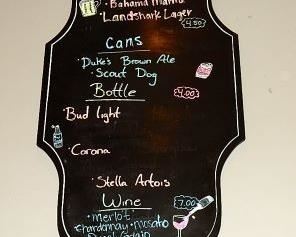 · Bahama Mama
· Landshark Lager
4.50
Cans
· Duke's Brown Ale
· Scout Dog
Bottle
4.00
· Bud light
· Corona
· Stella Artois
Wine
7.00
· Merlot
· Chardonnay · Moscato